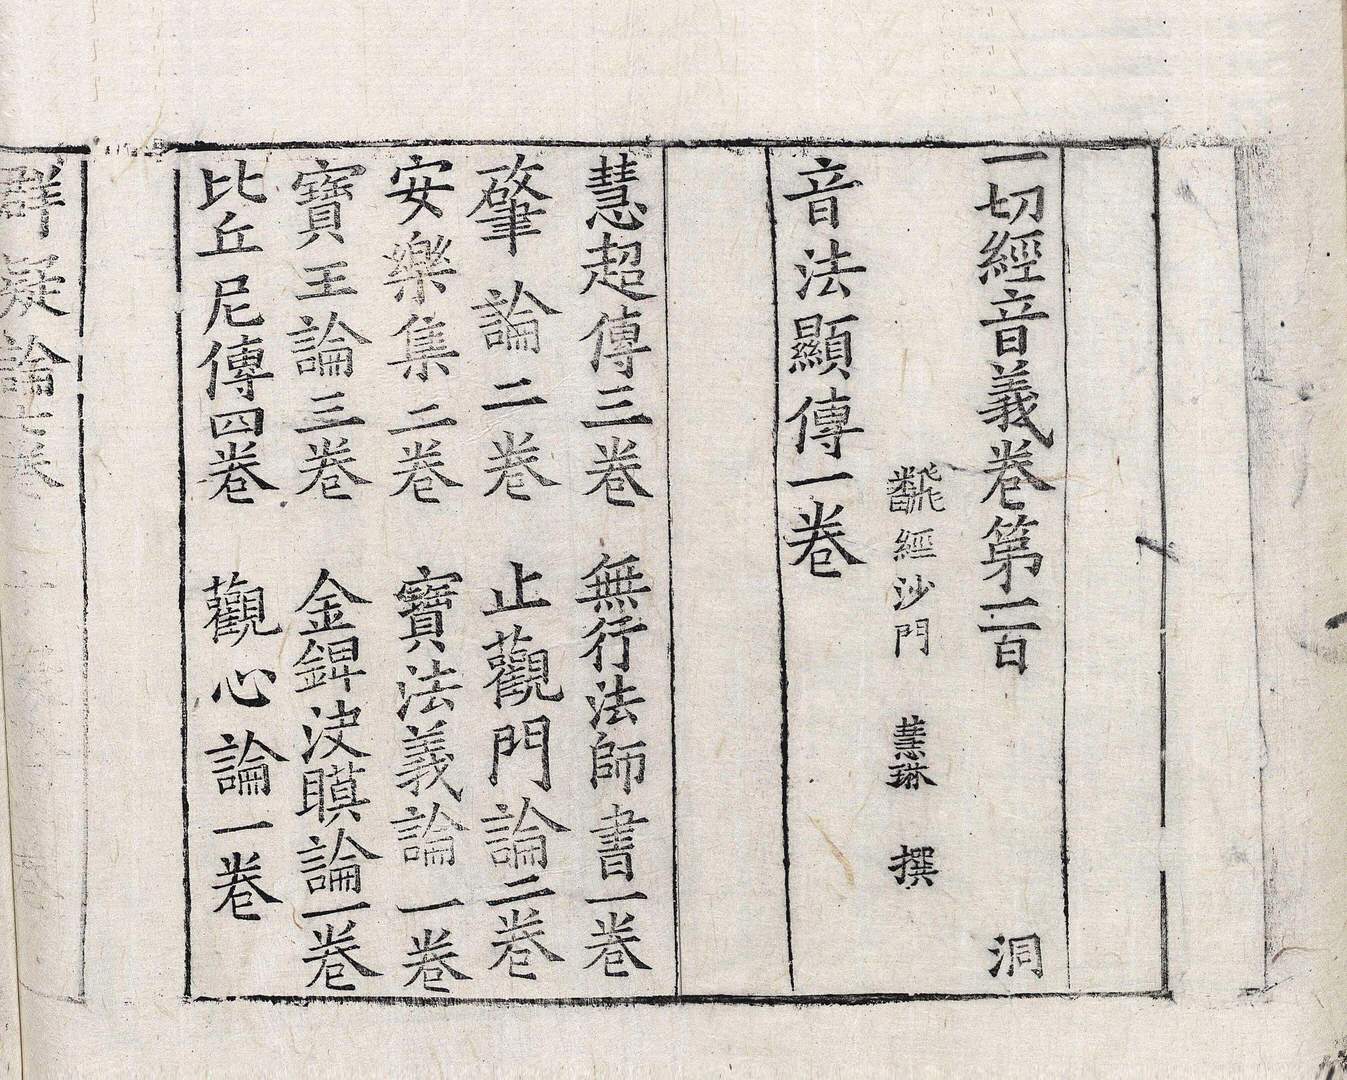 一切經音義卷第一百 洞
飜經沙門 慧琳 撰
音法顯傳一卷
慧超傳三卷 無行法師書一卷
肇論二卷 止觀門論二卷
安樂集二卷 寶法義論一卷
寶王論三卷 金錍決瞙論一卷
比丘尼傳四卷 觀心論一卷
群疑論